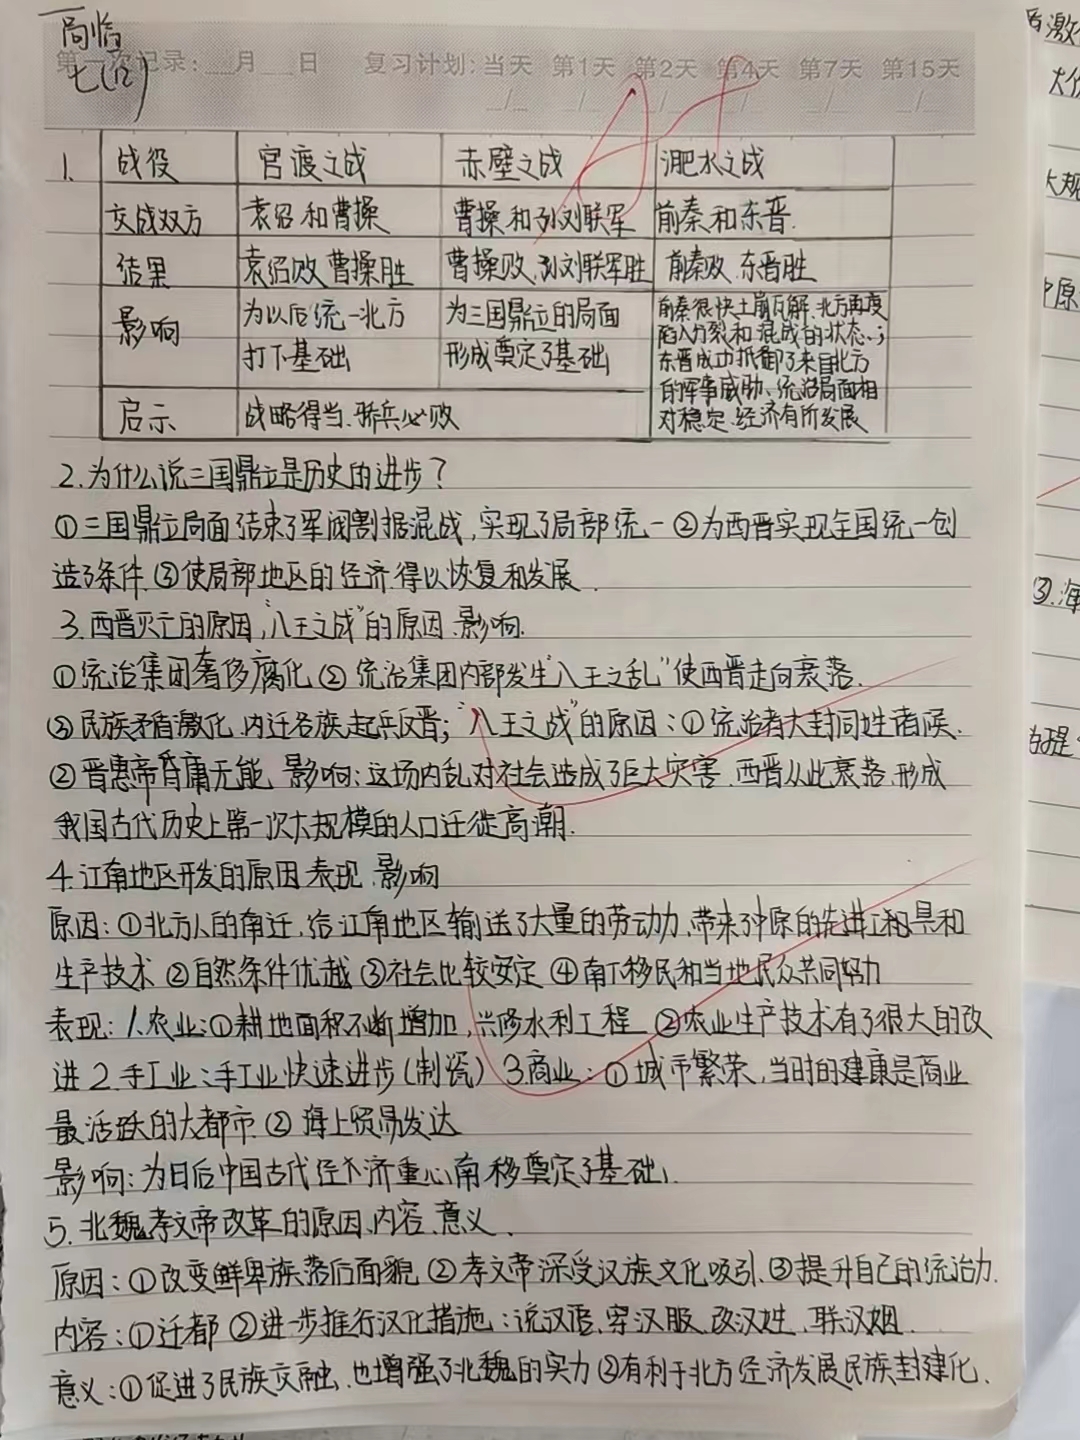 局恺
第一次记录:__月__日 复习计划:当天 第1天 第2天 第4天 第7天 第15天
七(12)
1. 战役 官渡之战 赤壁之战 淝水之战
交战双方 袁绍和曹操 曹操和孙刘联军 前秦和东晋.
结果 袁绍败,曹操胜 曹操败,孙刘联军胜 前秦败,东晋胜
影响 为以后统一北方 为三国鼎立的局面 前秦很快土崩瓦解,北方再度
打下基础 形成奠定了基础 陷入分裂和混战的状态.;
东晋成功抵御了来自北方
的军事威胁、统治局面相
启示 战略得当、骄兵必败 对稳定、经济有所发展
2.为什么说三国鼎立是历史的进步?
①三国鼎立局面结束了军阀割据混战,实现了局部统一 ②为西晋实现全国统一创
造了条件.③使局部地区的经济得以恢复和发展.
3.西晋灭亡的原因,"八王之战"的原因、影响.
①统治集团奢侈腐化 ② 统治集团内部发生"八王之乱"使西晋走向衰落.
③民族矛盾激化,内迁各族起兵反晋;"八王之战"的原因:①统治者大封同姓诸侯.
②晋惠帝昏庸无能. 影响:这场内乱对社会造成了巨大灾害.西晋从此衰落,形成
我国古代历史上第一次大规模的人口迁徙高潮.
4.江南地区开发的原因 表现、影响
原因:①北方人的南迁,给江南地区输送了大量的劳动力,带来了中原的先进工具和
生产技术 ②自然条件优越 ③社会比较安定 ④南下移民和当地民众共同努力
表现:1.农业:①耕地面积不断增加,兴修水利工程 ②农业生产技术有了很大的改
进 2.手工业:手工业快速进步(制瓷) 3.商业:①城市繁荣,当时的建康是商业
最活跃的大都市.② 海上贸易发达
影响:为日后中国古代经济重心南移奠定了基础.
5.北魏孝文帝改革的原因、内容、意义.
原因:①改变鲜卑族落后面貌 ②孝文帝深受汉族文化吸引.③提升自己的统治力.
内容:①迁都 ②进一步推行汉化措施:说汉语、穿汉服、改汉姓、联汉姻.
意义:①促进了民族交融,也增强了北魏的实力 ②有利于北方经济发展民族封建化.